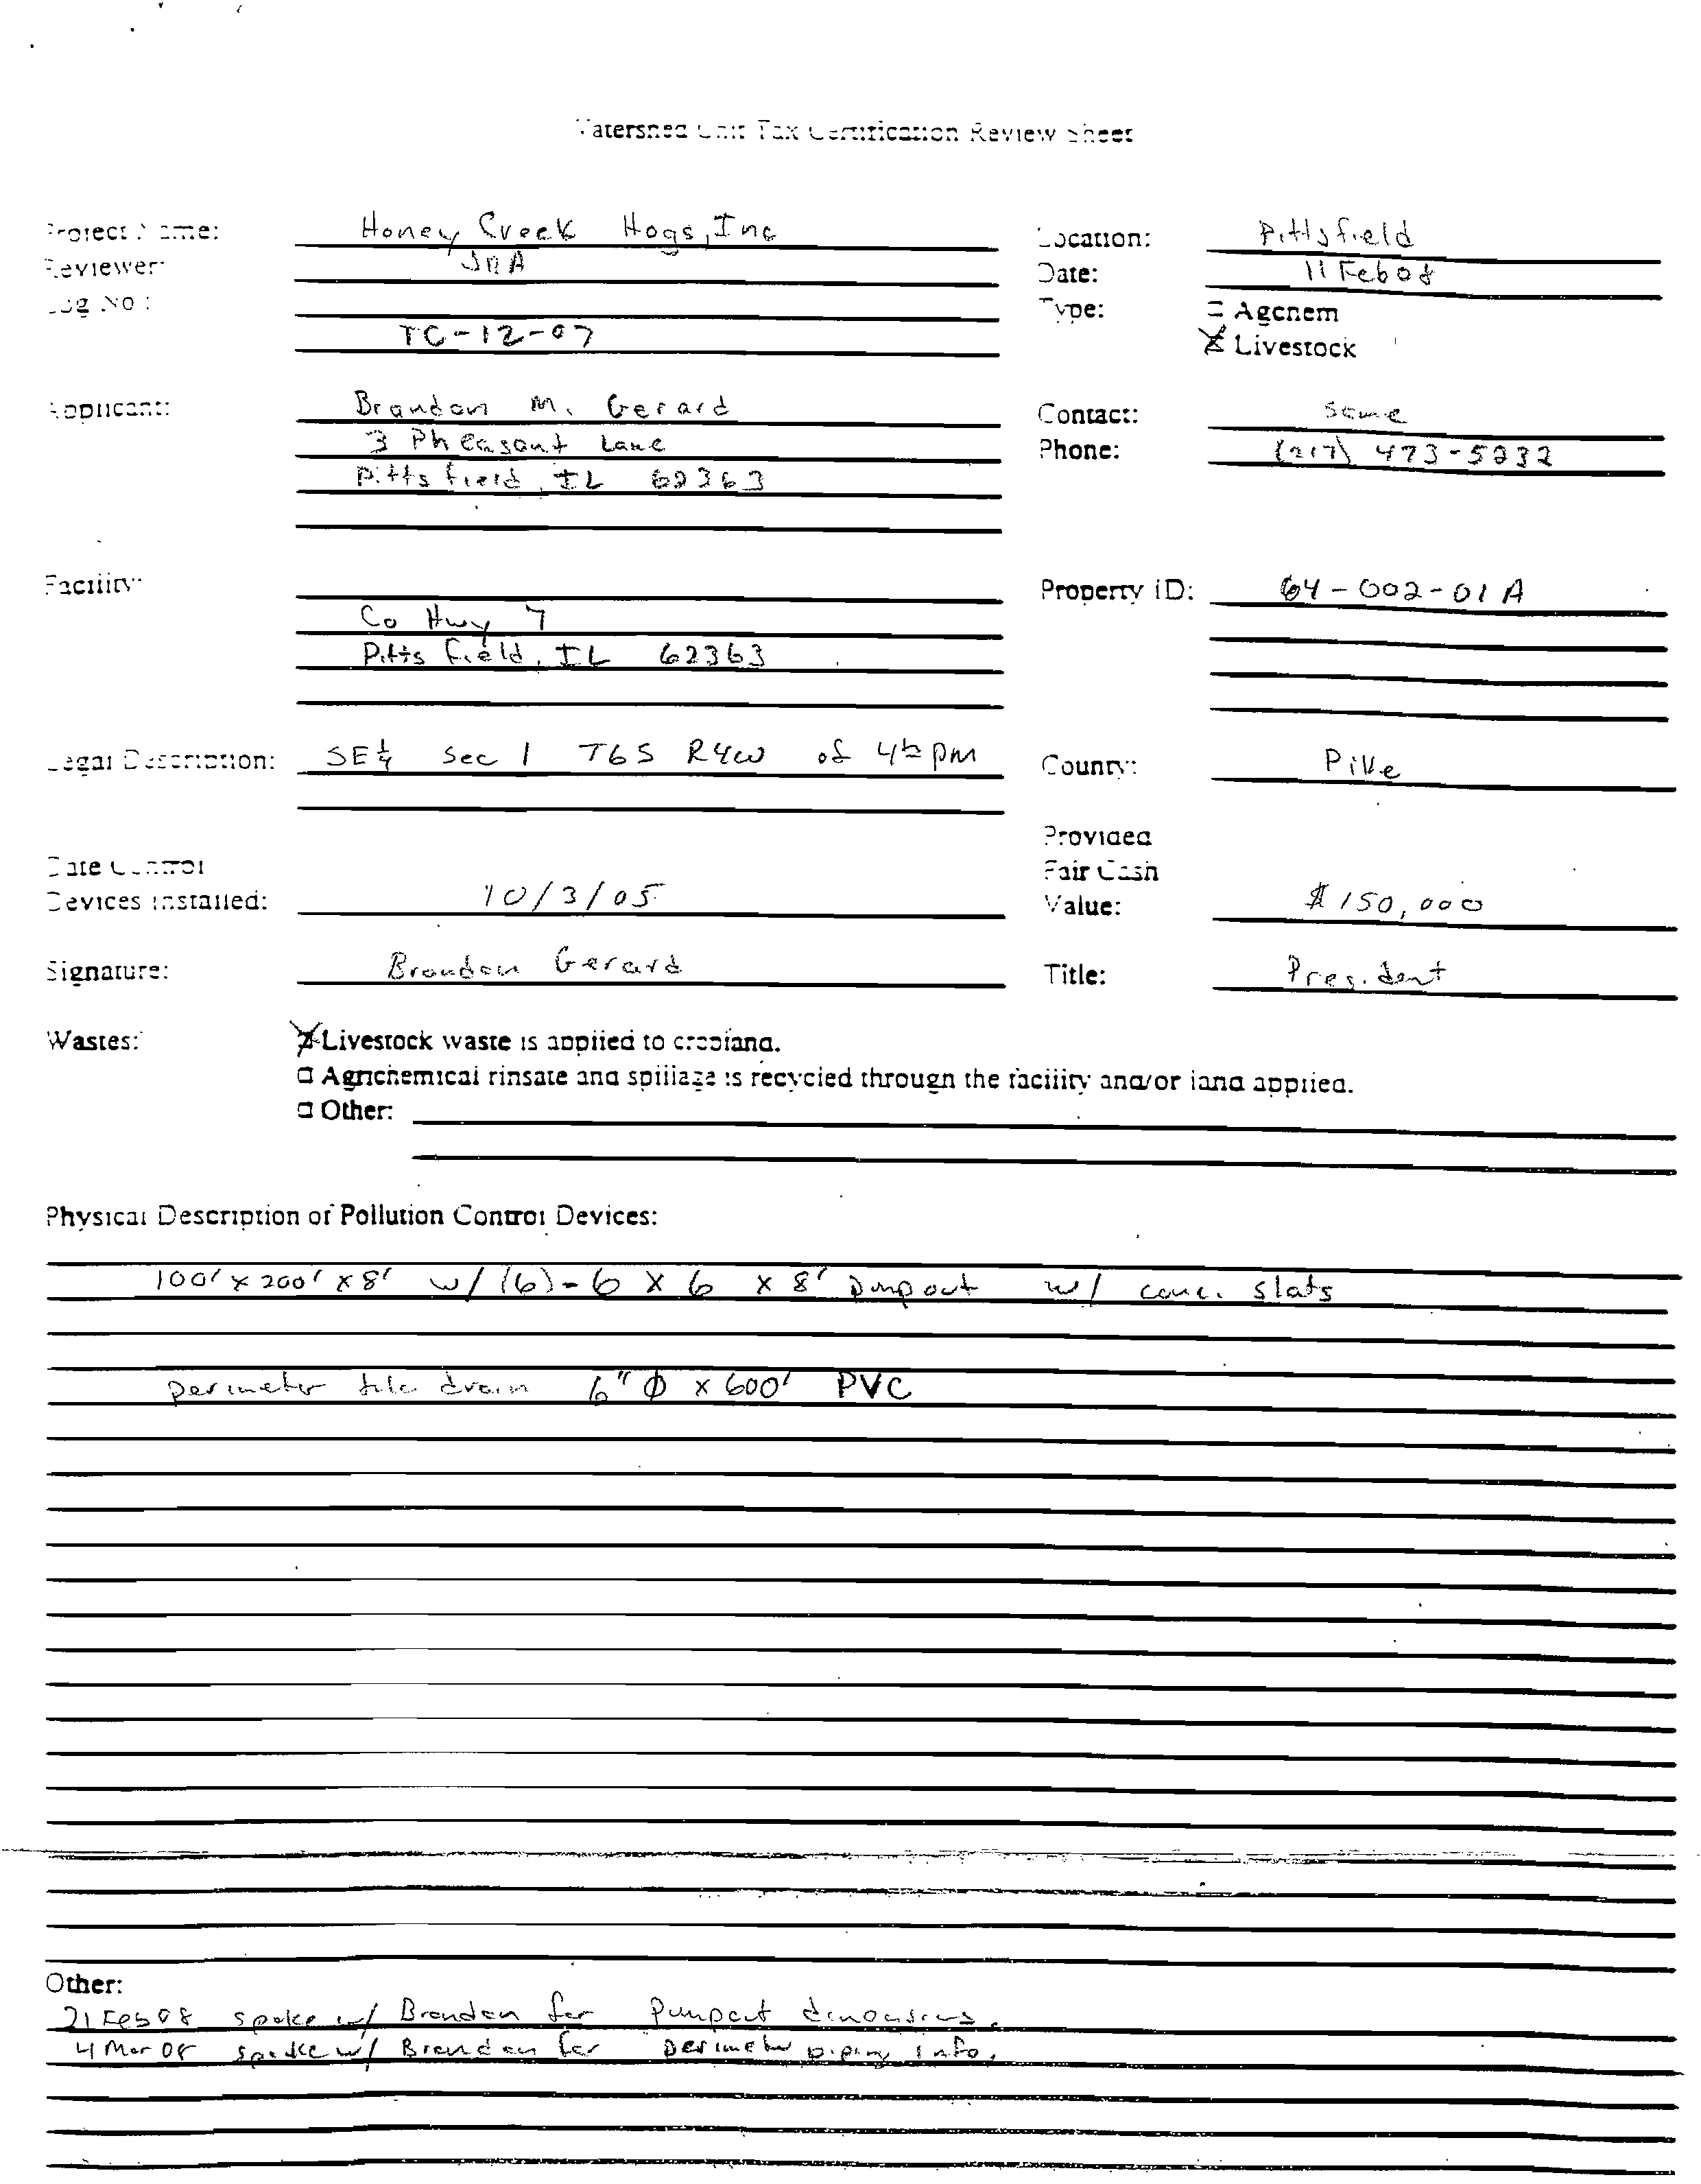 Watershed Unit Tax Certification Review Sheet
Project Name: Honey Creek Hogs, Inc Location: Pittsfield
Reviewer: Date: 11 Feb 08
Log No: Type: □ Agchem
TC-12-07 Livestock
Applicant: Brandon M. Gerard Contact: Same
3 Pheasant Lane Phone: (217) 473-5232
Pittsfield, IL 62363
Facility: Property ID: 64-002-01A
Co Hwy 7
Pittsfield, IL 62363
Legal Description: SE¼ Sec 1 T6S R4W of 4th PM County: Pike
Provided
Date Control Fair Cash
Devices installed: 10/3/05 Value: $150,000
Signature: Brandon Gerard Title: President
Wastes: Livestock waste is applied to cropland.
□ Agrichemical rinsate and spillage is recycled through the facility and/or land applied.
□ Other:
Physical Description of Pollution Control Devices:
100' x 200' x 8' w/ (6)- 6 x 6 x 8' pumpout w/ conc. slats
perimeter tile drain 6" Φ x 600' PVC
Other:
21 Feb 08 spoke w/ Brandon for pumpout dimensions.
4 Mar 08 spoke w/ Brandon for perimeter piping info.